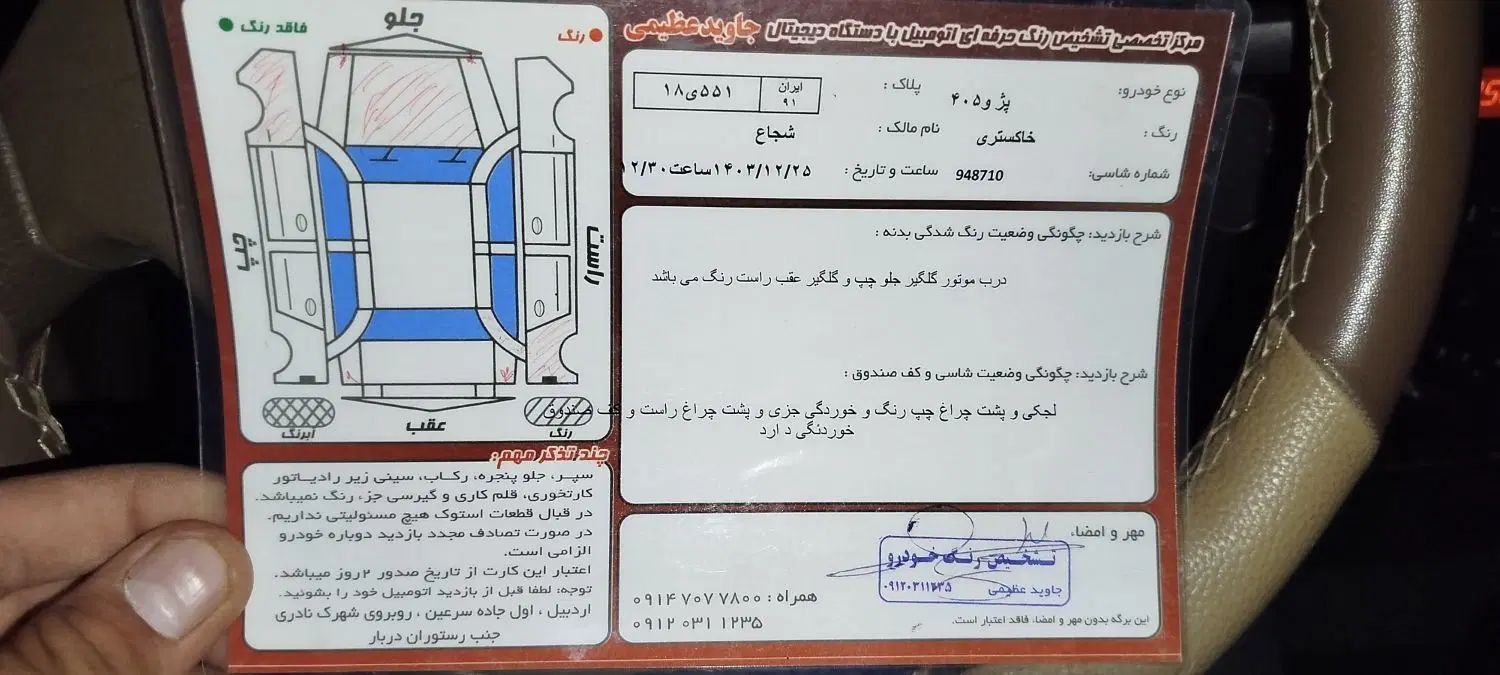 مرکز تخصصی تشخیص رنگ حرفه ای اتومبیل با دستگاه دیجیتال جاوید عظیمی
نوع خودرو: پژو۴۰۵
پلاک: ایران ۹۱ ۵۵۱ی۱۸
رنگ: خاکستری
نام مالک: شجاع
شماره شاسی: 948710
ساعت و تاریخ: ۱۴۰۳/۱۲/۲۵ساعت۱۲/۳۰
شرح بازدید: چگونگی وضعیت رنگ شدگی بدنه:
درب موتور گلگیر جلو چپ و گلگیر عقب راست رنگ می باشد
شرح بازدید: چگونگی وضعیت شاسی و کف صندوق:
لچکی و پشت چراغ چپ رنگ و خوردگی جزی و پشت چراغ راست و کف صندوق
خوردنگی د ارد
مهر و امضاء
تشخیص رنگ خودرو
جاوید عظیمی ۰۹۱۲۰۳۱۱۲۳۵
همراه: ۰۹۱۴ ۷۰۷ ۷۸۰۰
۰۹۱۲ ۰۳۱ ۱۲۳۵
این برگه بدون مهر و امضاء، فاقد اعتبار است.
رنگ
فاقد رنگ
جلو
چپ
راست
عقب
رنگ
ابرنگ
چند تذکر مهم:
سپر، جلو پنجره، رکاب، سینی زیر رادیاتور
کارتخوری، قلم کاری و گیرسی جزء رنگ نمیباشد.
در قبال قطعات استوک هیچ مسئولیتی نداریم.
در صورت تصادف مجدد بازدید دوباره خودرو
الزامی است.
اعتبار این کارت از تاریخ صدور ۲ روز میباشد.
توجه: لطفا قبل از بازدید اتومبیل خود را بشوئید.
اردبیل، اول جاده سرعین، روبروی شهرک نادری
جنب رستوران دربار